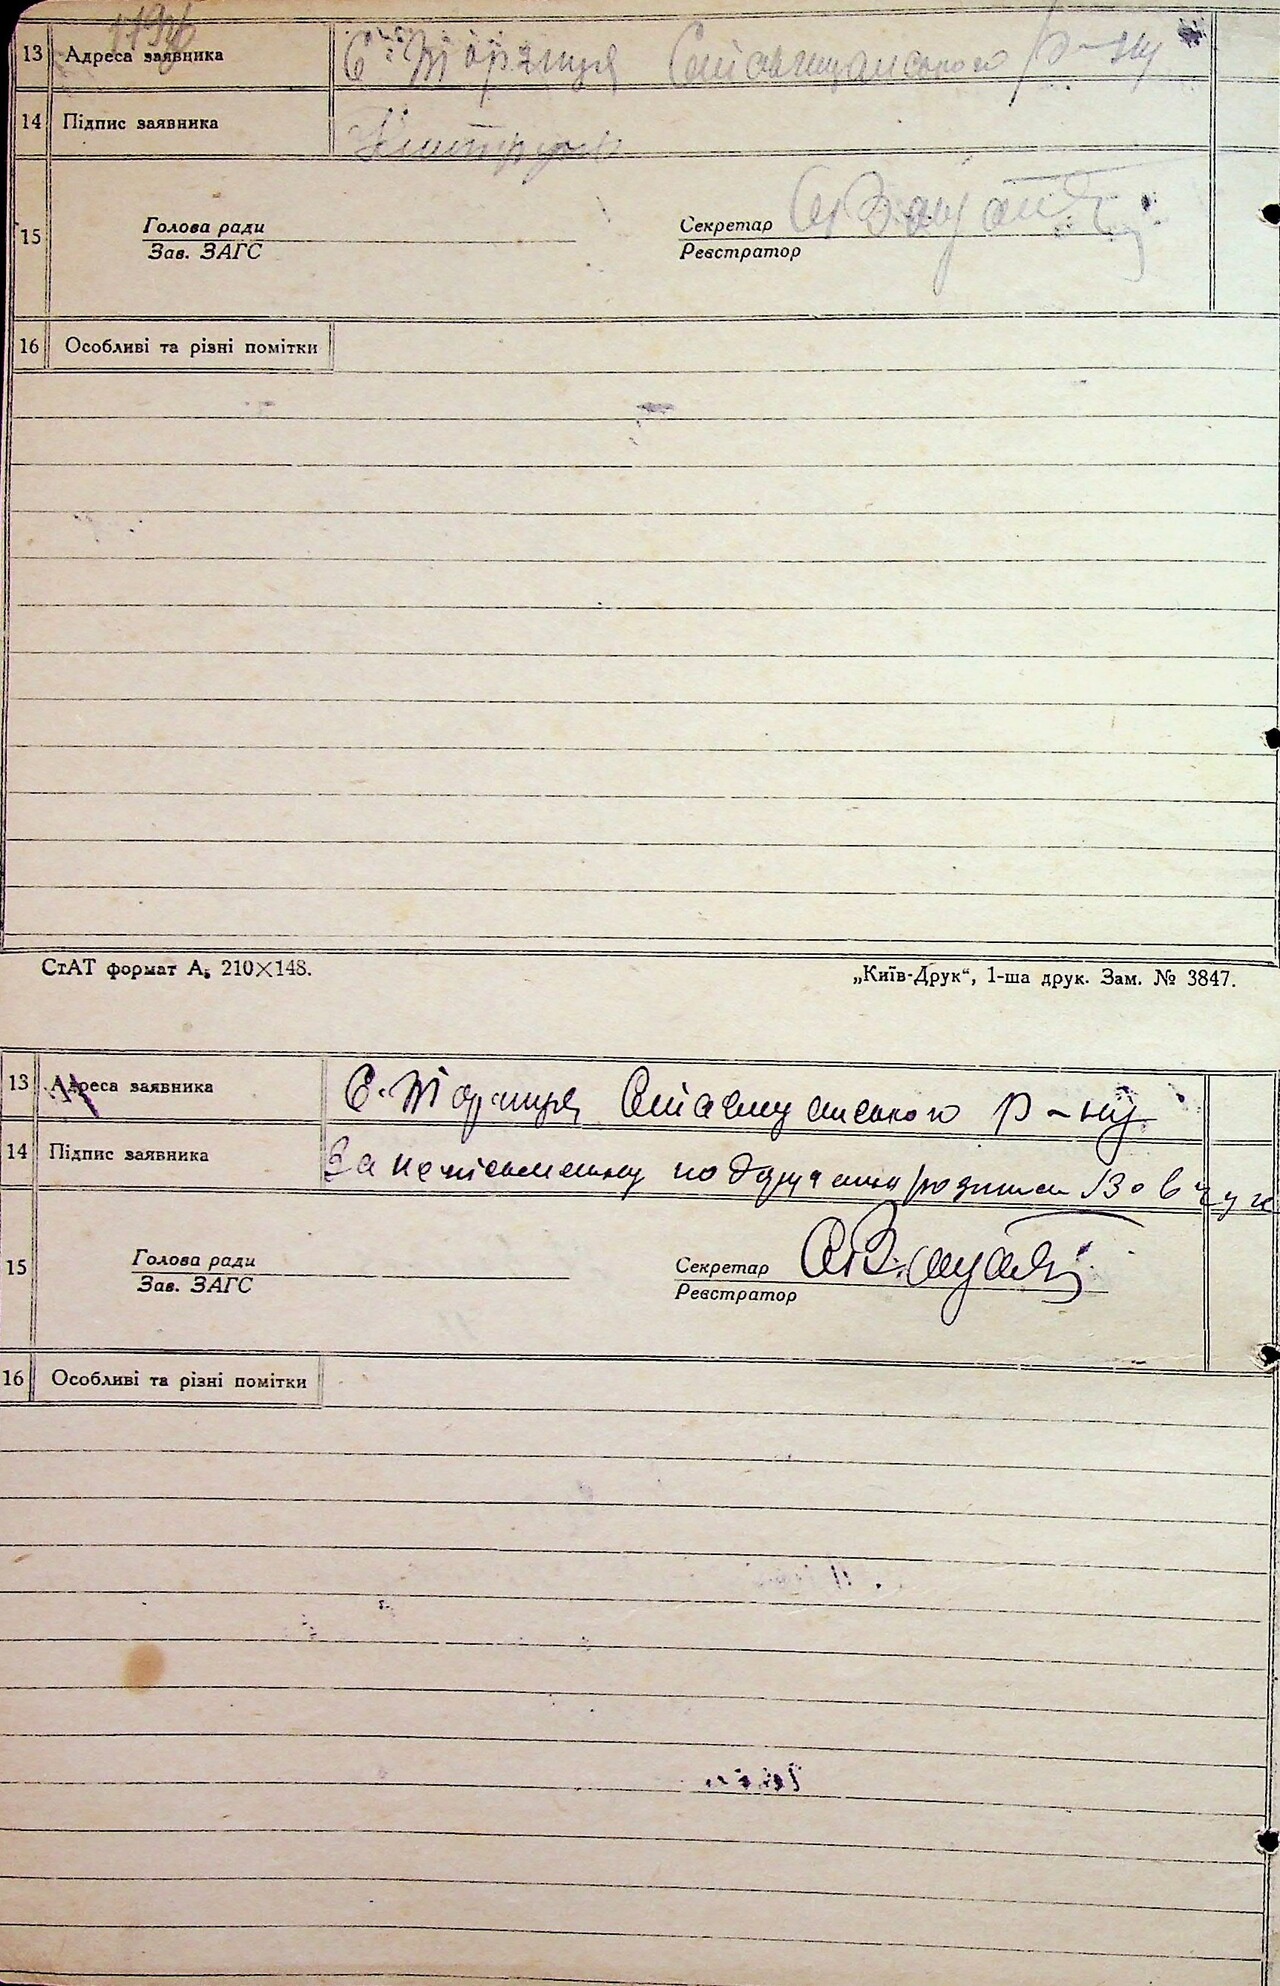 13 Адреса заявника С. Торчиця Ставищанського р-ну
14 Підпис заявника
15 Голова ради Секретар
Зав. ЗАГС Реєстратор
16 Особливі та різні помітки
СтАТ формат А₅ 210×148. „Київ-Друк“, 1-ша друк. Зам. № 3847.
13 Адреса заявника С. Торчиця Ставищанського р-ну
14 Підпис заявника За неписьменну Вовчук
15 Голова ради Секретар
Зав. ЗАГС Реєстратор
16 Особливі та різні помітки